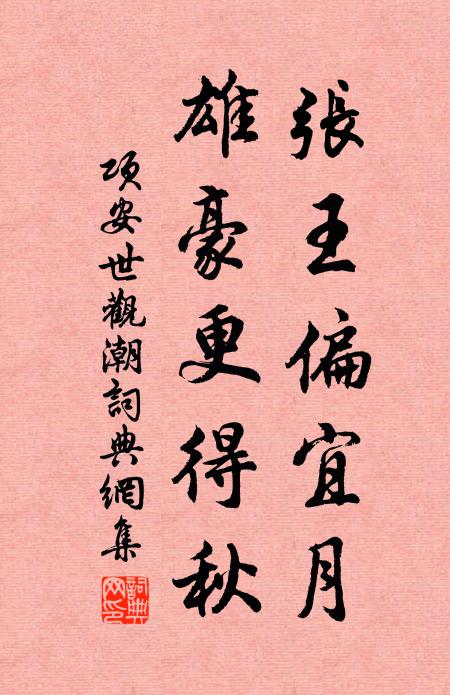 張王偏宜月
雄豪更得秋
項安世觀潮詞典網集
詞典網印